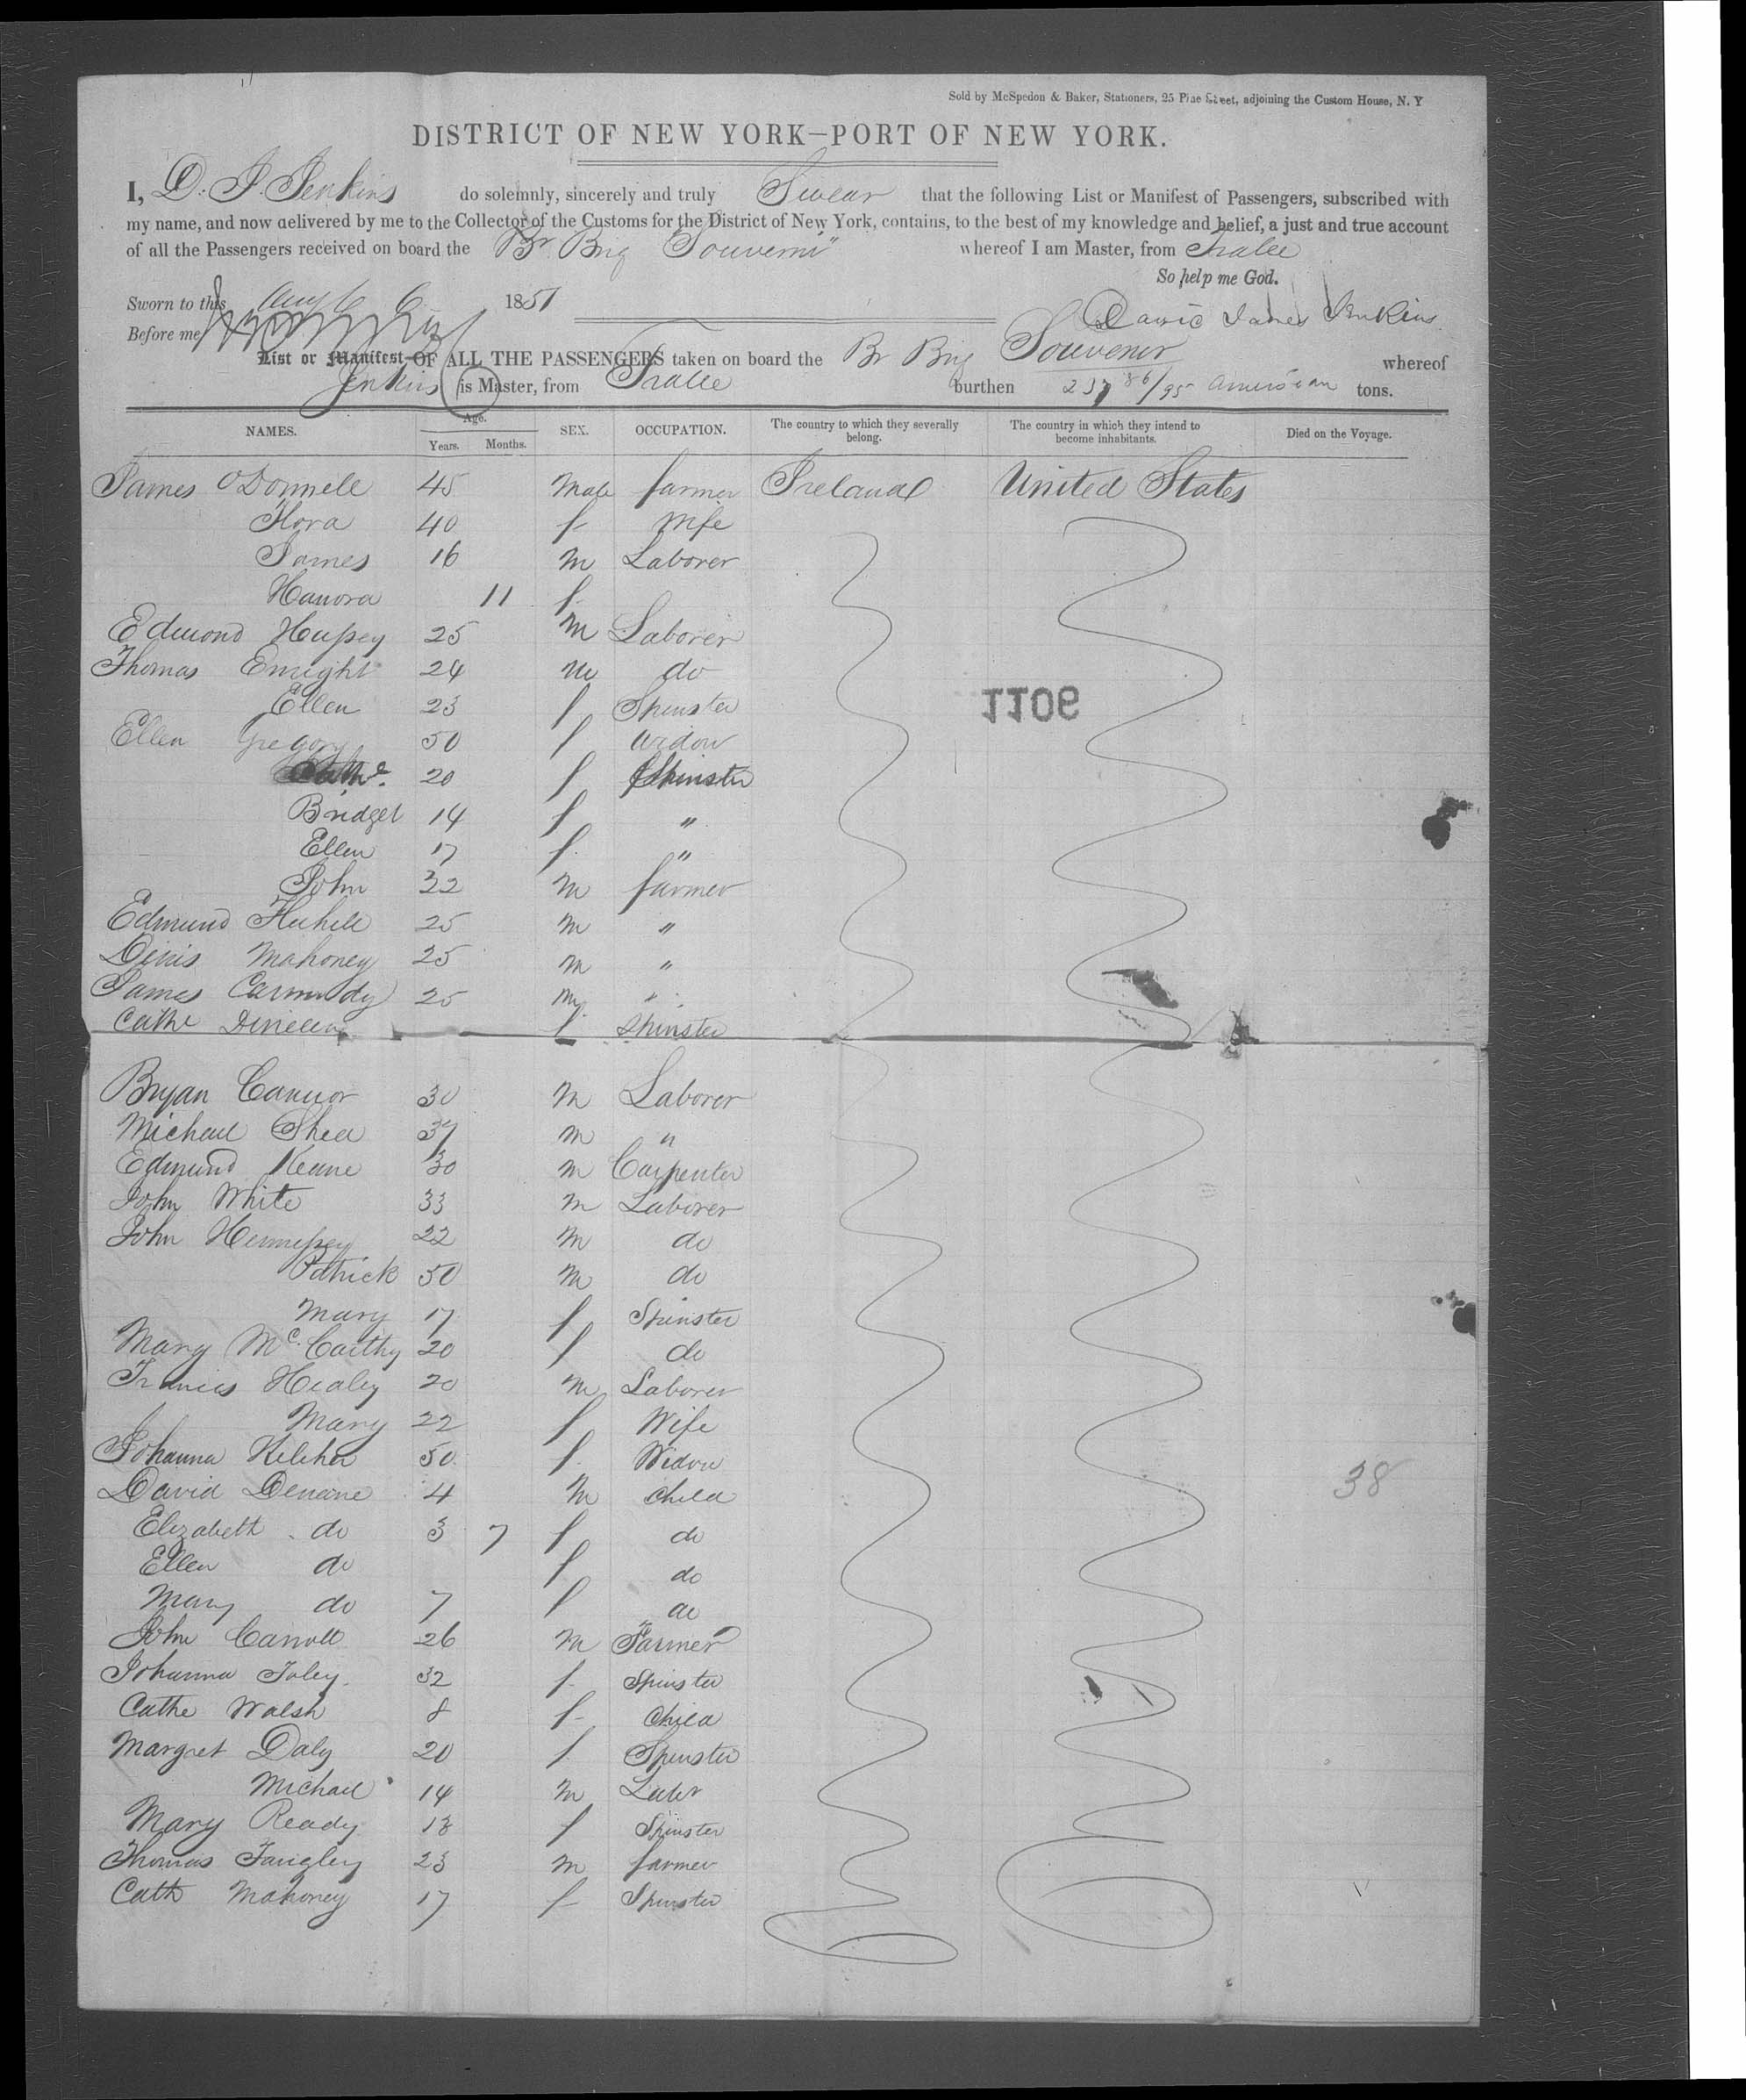 Sold by McSpedon & Baker, Stationers, 25 Pine Street, adjoining the Custom House, N. Y
DISTRICT OF NEW YORK—PORT OF NEW YORK.
I, D. J. Jenkins do solemnly, sincerely and truly Swear that the following List or Manifest of Passengers, subscribed with
my name, and now delivered by me to the Collector of the Customs for the District of New York, contains, to the best of my knowledge and belief, a just and true account
of all the Passengers received on board the Br. Brig Souvenir whereof I am Master, from Tralee
So help me God.
Sworn to this Aug 6 1851
David James Jenkins
Before me
List or Manifest OF ALL THE PASSENGERS taken on board the Br Brig Souvenir whereof
Jenkins is Master, from Tralee burthen 237 86/95 American tons.
NAMES. Age. Years. Months. SEX. OCCUPATION. The country to which they severally belong. The country in which they intend to become inhabitants. Died on the Voyage.
James O'Donnell 45 Male farmer Ireland United States
40 f Wife
James 16 m Laborer
Hanora 11 f
Edmond 25 m Laborer
Thomas Enright 24 m do
Ellen 23 f Spinster
1106
Ellen Gregory 50 f Widow
Cathe. 20 f Spinster
Bridget 14 f "
Ellen 17 f. "
John 22 m farmer
Edmund 25 m "
Denis Mahoney 25 m "
James Carmody 25 m "
Cathe f Spinster
Bryan Connor 30 m Laborer
Michael Shea 37 m "
Edmund Keane 30 m Carpenter
John White 33 m Laborer
John Hennessy 22 m do
Patrick 50 m do
Mary 17 f Spinster
Mary McCarthy 20 f do
Francis Healey 20 m Laborer
Mary 22 f Wife
Johanna 50 f. Widow
David Deneane 4 m child
38
Elizabeth do 3 7 f do
Ellen do f do
Mary do 7 f do
John Carroll 26 m Farmer
Johanna Foley 32 f Spinster
Cathe Walsh 8 f child
Margret Daly 20 f Spinster
Michael 14 m Labr
Mary Ready 18 f Spinster
Thomas 23 m farmer
Cath Mahoney 17 f Spinster